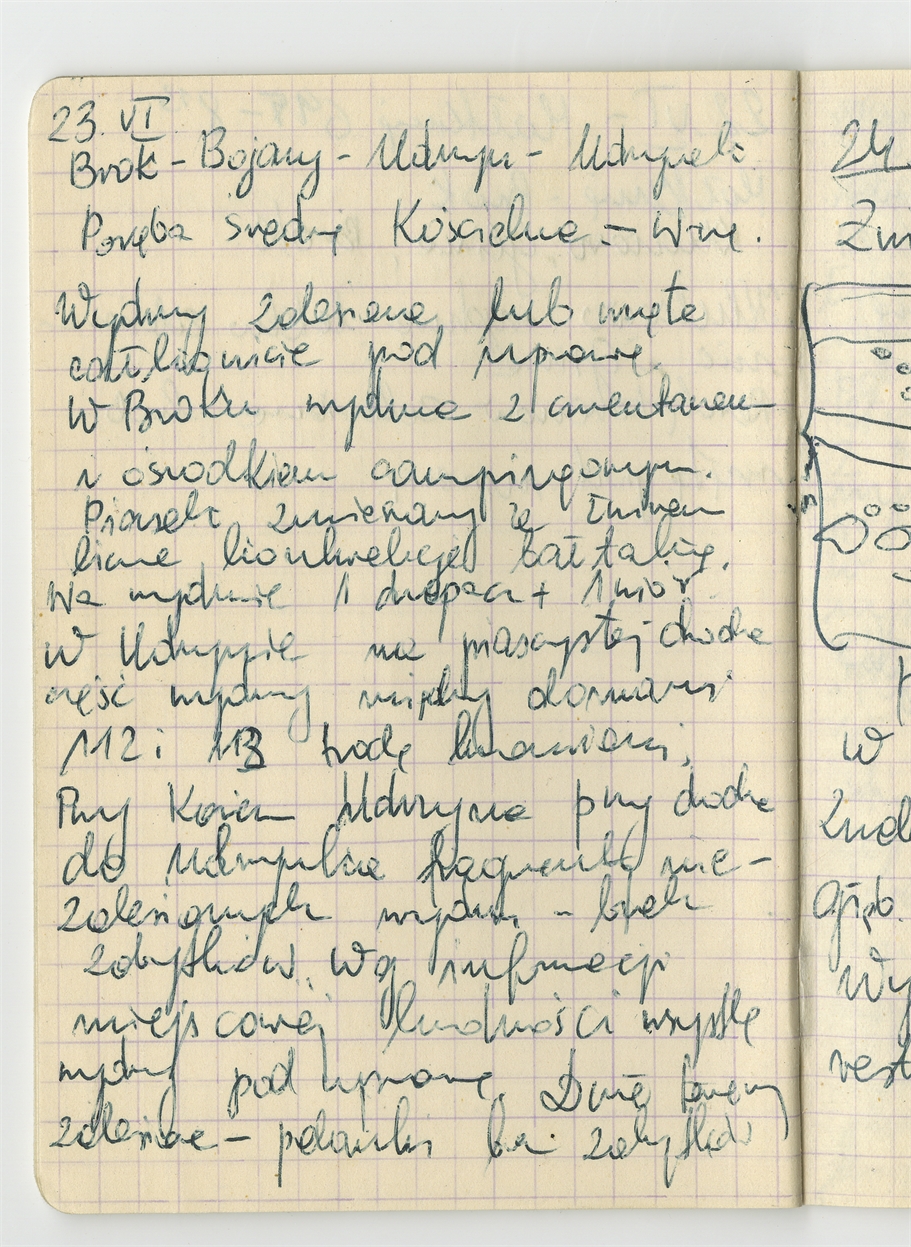 23. VI
Brok - Bojany - Udrzyn - Udrzynek
Poręba Średnia Kościelna - W-wę.
Wydmy zalesione lub wzięte
całkowicie pod uprawę.
W Broku wydma z cmentarzem
i ośrodkiem campingowym.
Piasek zmieszany ze żwirem
liczne konkrecje
Na wydmie 1 drapacz + 1 wiór
W Udrzynie na piaszczystej drodze
część wydmy między domami
112 i 113 trochę krzemieni.
Przy Końcu Udrzyna przy drodze
do Udrzynka fragmenty nie-
zalesionych wydm - brak
zabytków. Wg informacji
miejscowej ludności wszystkie
wydmy pod uprawę. Duże tereny
zalesione - polanki bez zabytków
24
Zni
W
Znal
Głęb.
Wy
rest